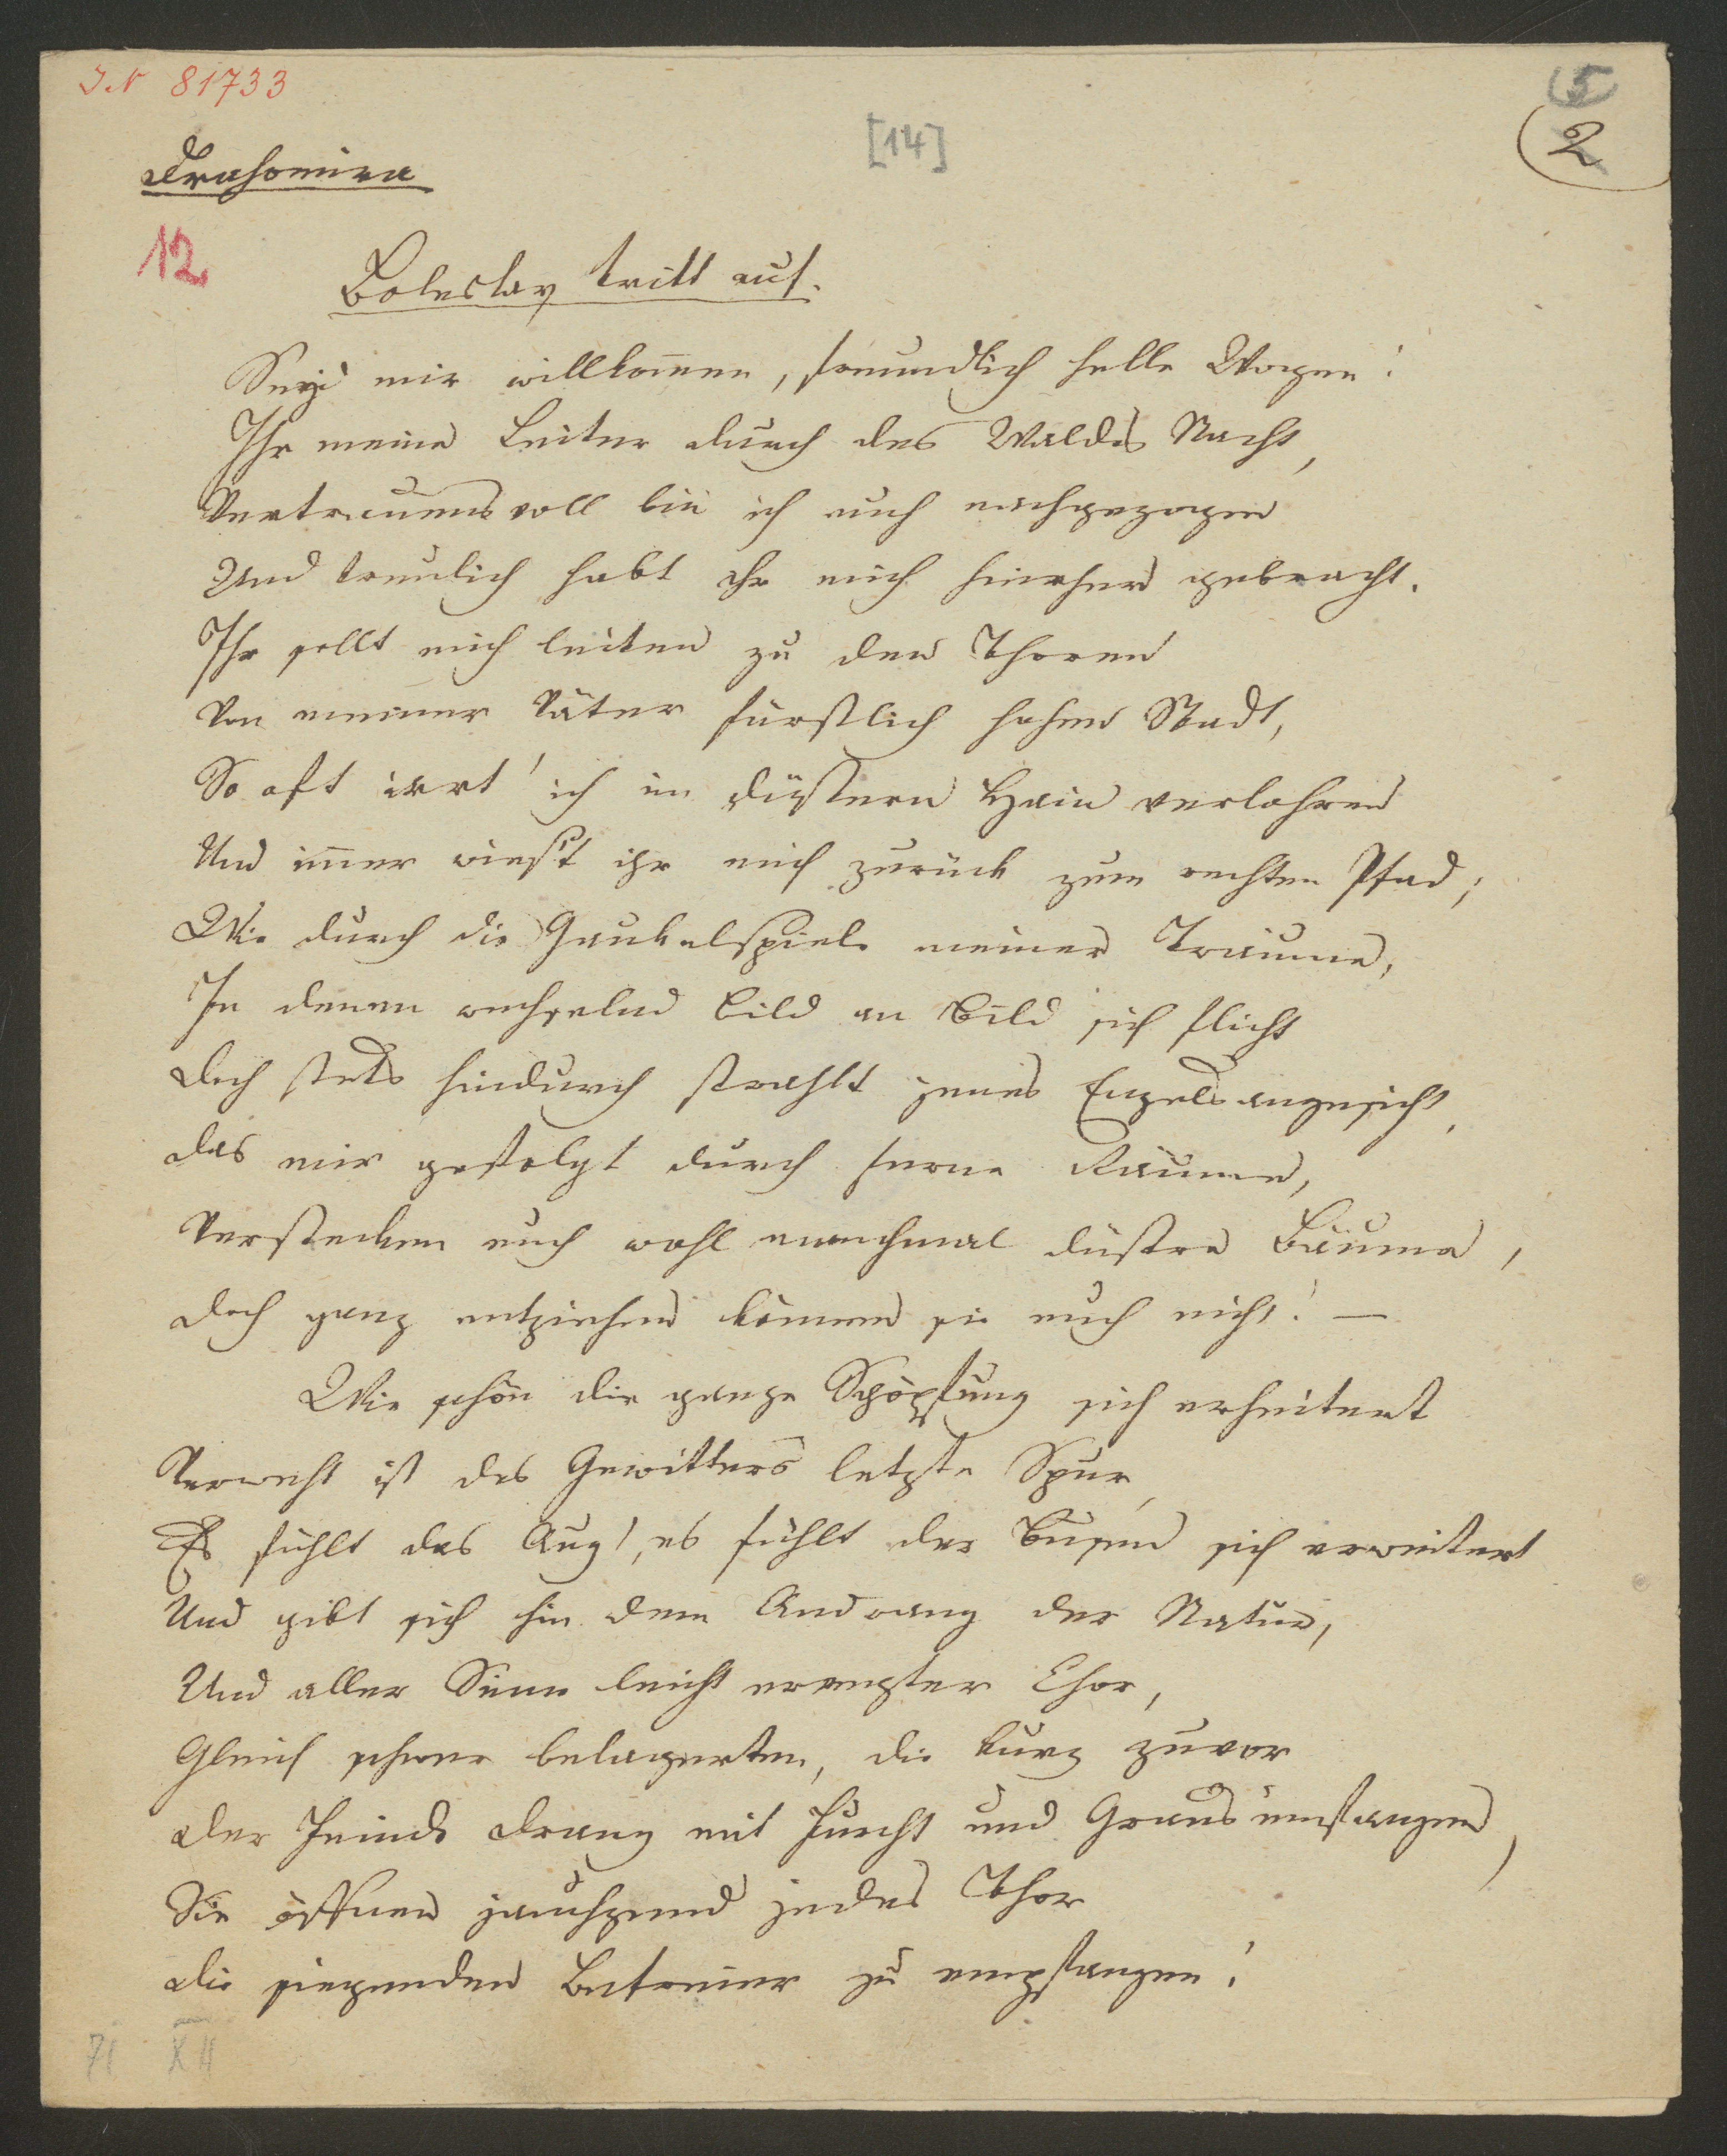 I.N 81733
(5)
[14]
2
Drahomira
12
Boleslav tritt auf.
Seyd mir willkom̅en, freundlich helle Wogen!
Ihr meine Leiter durch des Waldes Nacht,
Vertrauensvoll bin ich euch nachgezogen
Und treulich habt ihr mich hierher gebracht.
Ihr sollt mich leiten zu den Thoren
Von meiner Väter fürstlich hohen Stadt,
So oft irrt' ich im düstern Hain verlohren
Und im̅er wießt ihr mich zurück zum rechten Pfad;
Wie durch die Gaukelspiele meiner Träume,
In denen wechselnd Bild an Bild sich flicht
Doch stets hindurch strahlt jenes Engelsangesicht,
Das mir gefolgt durch ferne Räume,
Verstecken euch wohl manchmal düstre Bäume,
Doch ganz entziehen können sie euch nicht! —
Wie schön die ganze Schöpfung sich erheitert
Verweht ist des Gewitters letzte Spur,
Es fühlt das Aug', es fühlt der Busen sich erweitert
Und gibt sich hin dem Andrang der Natur,
Und aller Sinne leicht erregter Chor,
Gleich schwer belagerten, die kurz zuvor
Der Feinde Drang mit Furcht und Graus umfangen,
Sie öffnen jauchzend jedes Thor
Die siegenden Befreier zu empfangen!
71 XII